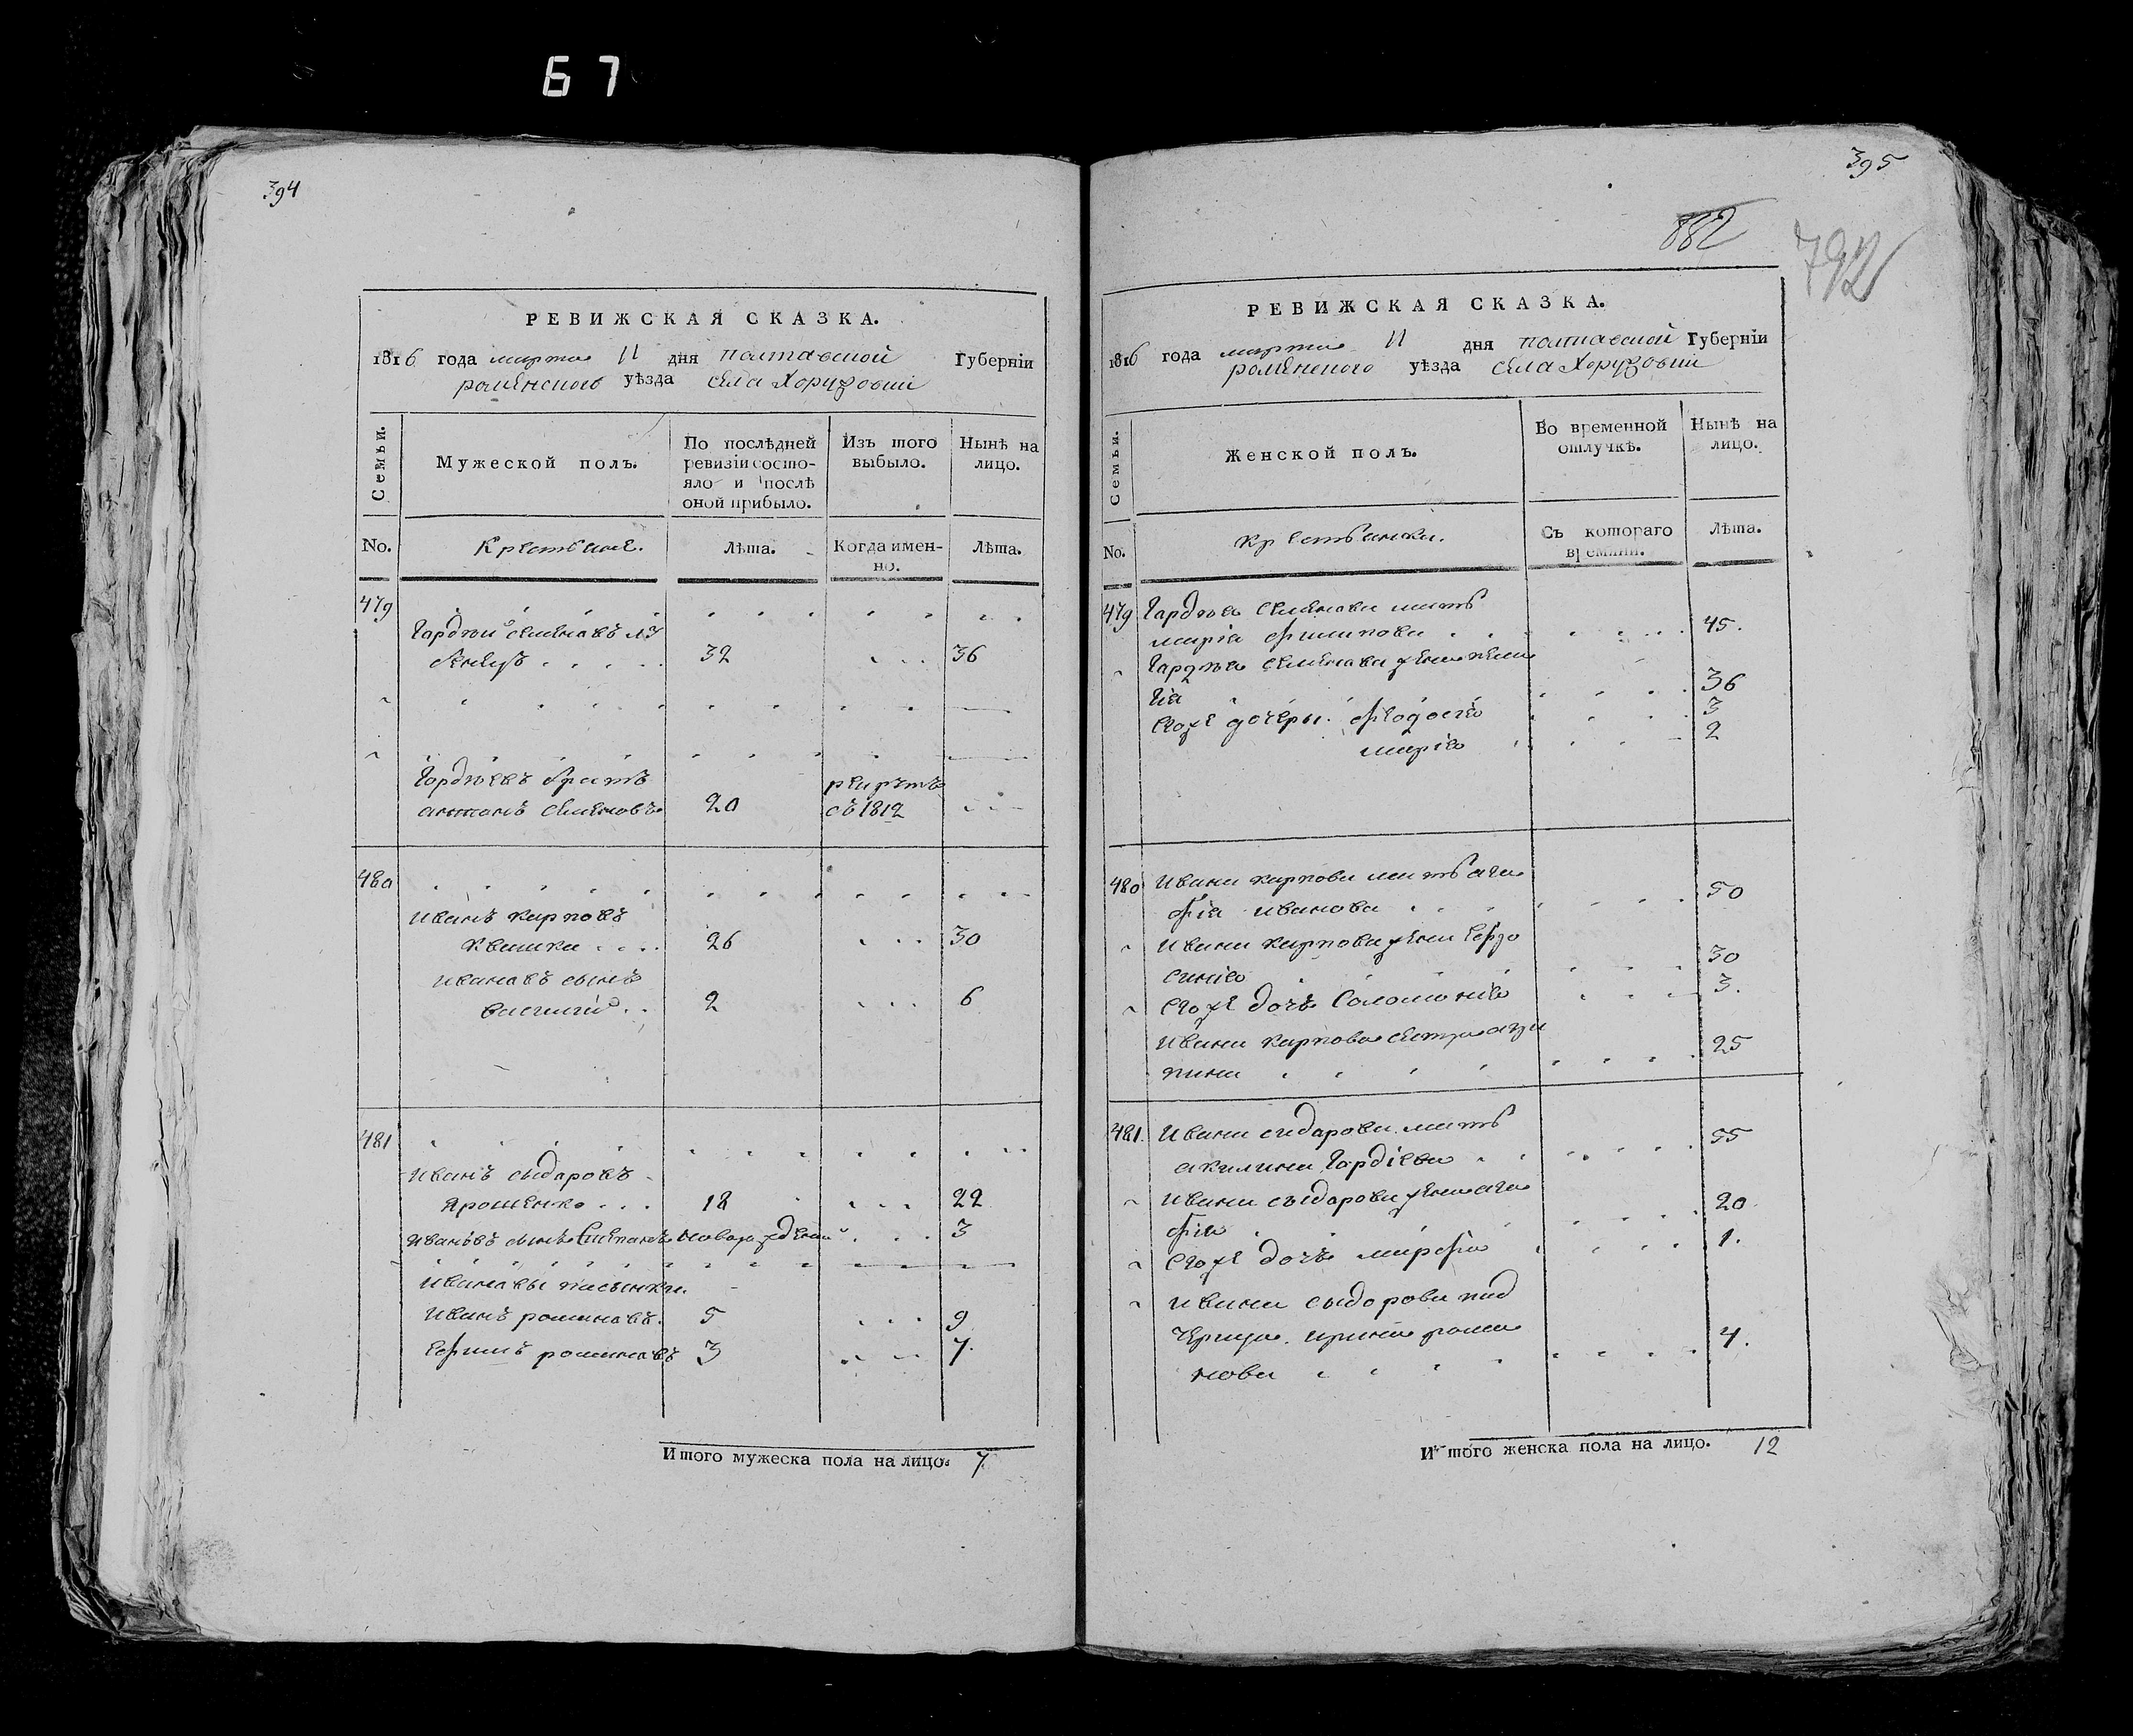 67
394
РЕВИЖСКАЯ СКАЗКА.
1816 года марта 11 дня полтавской Губернiи
роменского уѣзда села Хоружовки
Семьи.
Мужеской полъ.
По послѣдней ревизiи состояло и послѣ оной прибыло.
Изъ того выбыло.
Нынѣ на лицо.
No.
Крестьяне.
Лѣта.
Когда именно.
Лѣта.
479
Гордѣй Семеновъ
32 36
Гордѣевъ братъ рекрутъ
антонъ Семеновъ 20 съ 1812
480
Иванъ карповъ
Квашка 26 30
Ивановъ сынъ
василий 2 6
481
Иванъ сыдоровъ
Ярошенко 18 22
Ивановъ сынъ Степанъ новорождений 3
Ивановы пасынки
Иванъ романовъ. 5 9
Ефимъ романовъ 3 7.
Итого мужеска пола на лицо. 7
395
882
792
РЕВИЖСКАЯ СКАЗКА.
1816 года марта 11 дня полтавской Губернiи
роменского уѣзда села Хоружовки
Семьи.
Женской полъ.
Во временной отлучкѣ.
Нынѣ на лицо.
No.
крестьянки.
Съ котораго времяни.
Лѣта.
479 Гордѣя Семенова мать
марiя филипова 45.
Гордѣя Семенова жена
36
Егоже дочери. феодосiя 3
марiя 2
480 Ивана карпова мать ага
фiя иванова 50
Ивана карпова жена Евфро
синiя 30
Егоже дочь Соломонiя 3.
Ивана карпова сестра агри
пина 25
481. Ивана сидорова мать
акилина Гордiева 55
Ивана сыдорова жена ага
фiя 20.
Егоже дочь марфа 1.
Ивана сыдорова пад
черица ирина рома
нова 4.
Итого женска пола на лицо. 12